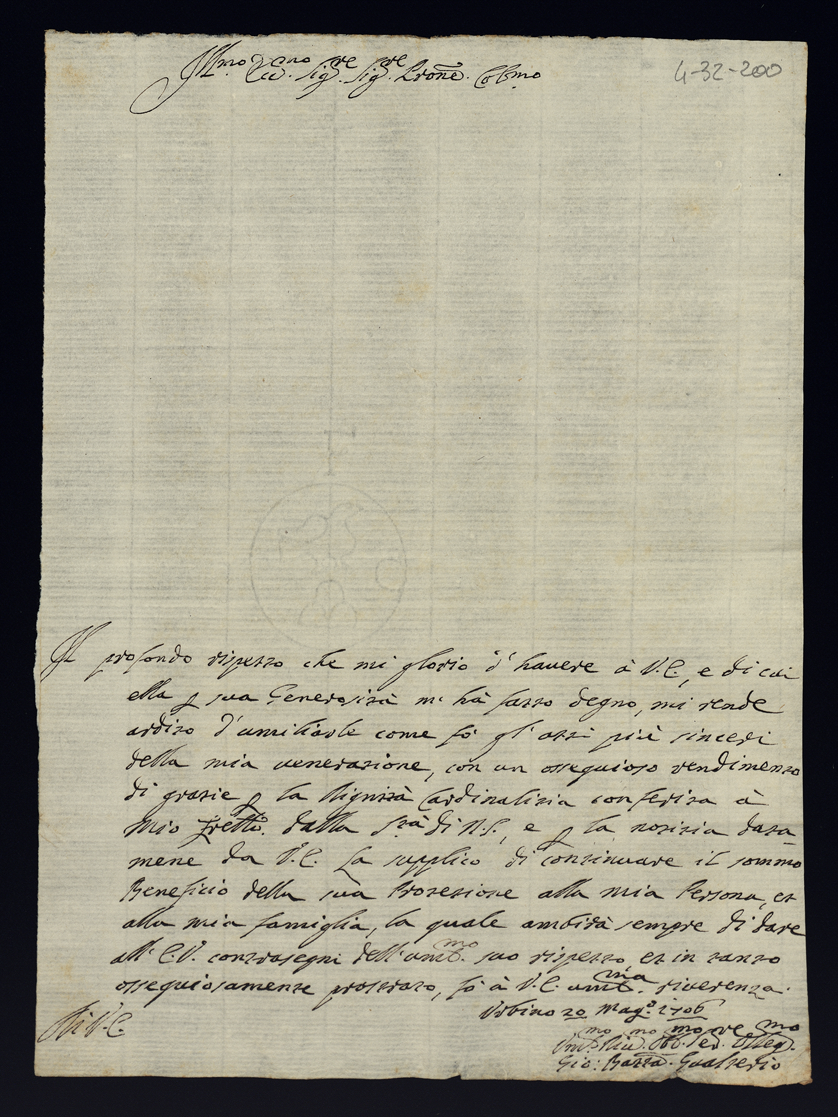 Ill.mo Ecc.no Sig.re Sig.re Prone. Colmo
4-32-200
Il profondo rispetto che mi glorio d'havere à V.E., e di cui
ella p sua Generosità m'hà fatto degno, mi rende
ardito d'umiliarle come fò gl'atti più sinceri
della mia venerazione, con un ossequioso rendimento
di grazie p la Dignità Cardinalizia conferita à
mio Frello. dalla S.tà di N.S., e p la notizia data
mene da V.E. La supplico di continuare il sommo
Beneficio della sua Protezione alla mia Persona, et
alla mia famiglia, la quale ambirà sempre di dare
all'E.V. contrasegni dell'um.mo suo rispetto et in tanto
ossequiosamente prostrato, fò à V.E. um.ma riverenza.
Urbino 20 Mag.o 1706
Di V.E.
Um.mo Obb.mo Ser.re
Gio: Batta. Gualterio